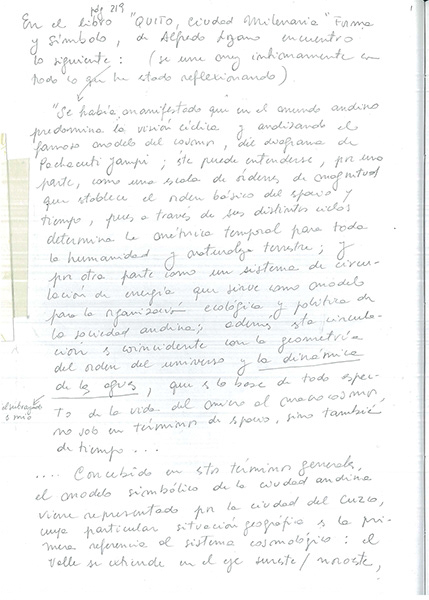 pg 219
En el libro "QUITO, Ciudad Milenaria" Forma
y Símbolo, de Alfredo Lozano encuentro
lo siguiente: (se une muy intimamente con
todo lo que he estado reflexionando).
"Se había manifestado que en el mundo andino
predomina la visión cíclica y analizando el
famoso modelo del cosmos, del diagrama de
Pachacuti Yampi; éste puede entenderse, por una
parte, como una escala de órdenes de magnitud
que establece el orden básico del espacio y
tiempo, pues a través de sus distintos ciclos
determina la métrica temporal para toda
la humanidad y naturaleza terrestre; y
por otra parte como un sistema de circu-
lación de energía que sirve como modelo
para la organización ecológica y política de
la sociedad andina; además esta circula-
ción es coincidente con la geometría
del orden del universo y la dinámica
de las aguas, que es la base de todo aspec-
to de la vida del micro al macrocosmos,
no solo en términos de espacio, sino también
de tiempo ...
el subrayado
es mío
.... Concebido en estos términos generales,
el modelo simbólico de la ciudad andina
viene representado por la ciudad del Cuzco,
cuya particular situación geográfica es la pri-
mera referencia al sistema cosmológico: el
Valle se extiende en el eje sureste/noroeste,